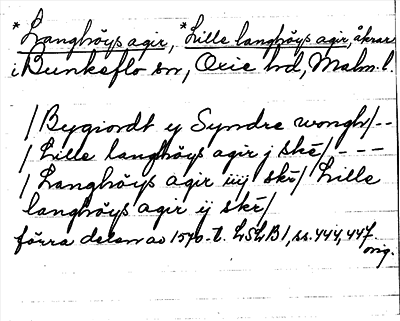 *Langhöys agir, *Lille langhöys agir, åkrar
i Bunkeflo sn, Oxie hd, Malm. l.
/Bygiordt ij Syndre wongh/--
/Lille langhöys agir j skē/---
/Langhöys agir iiij skē/ Lille
langhöys agir ij skē/
förra delen av 1570-t. LSLB1, ss. 444, 447.
orig.